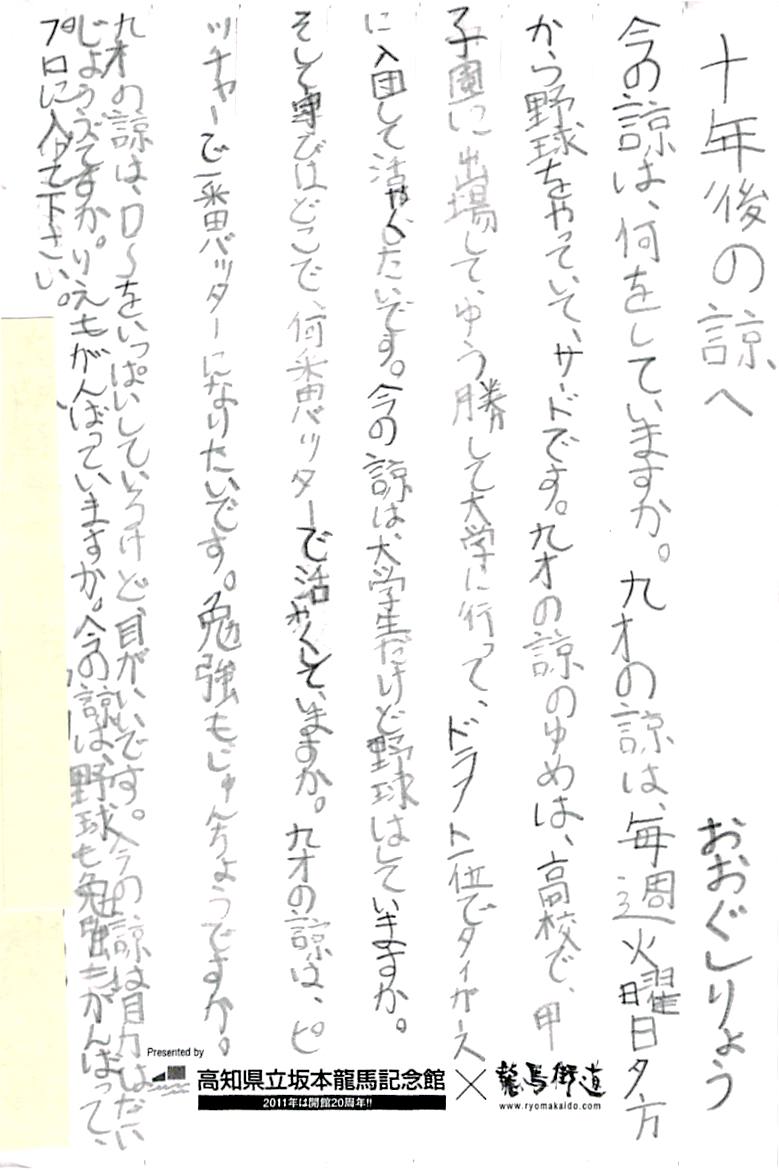 十年後の諒へ
おおぐしりょう
今の諒は、何をしていますか。九才の諒は、毎週火曜日夕方
から野球をやっていて、サードです。九才の諒のゆめは、高校で、甲
子園に出場して、ゆう勝して大学に行って、ドラフト一位でタイガース
に入団して活やくしたいです。今の諒は大学生だけど野球はしていますか。
そして守びはどこで、何番バッターで活やくしていますか。九才の諒は、ピ
ッチャーで一番バッターになりたいです。勉強もじゅんちょうですか。
九才の諒は、ロ～をいっぱいしているけど、目がいいです。今の諒は目力はだい
じょうぶですか。りえもがんばっていますか。今の諒は、野球も勉強もがんばって、
プロに入って下さい。
Presented by
高知県立坂本龍馬記念館×龍馬街道
2011年は開館20周年!!
www.ryomakaido.com